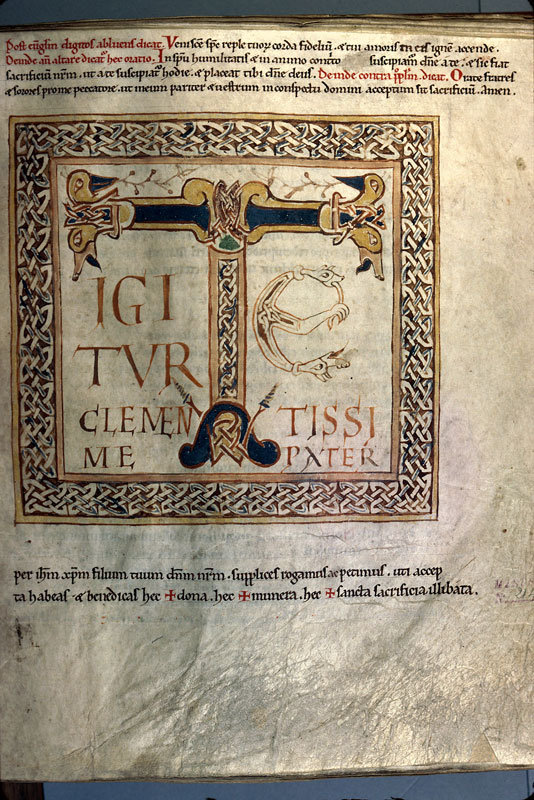 Post eu͞glm digitos abluens dicat. Veni sc͞e sp͞e reple tuoꝝ corda fideliu͞. & tui amoris in eis igne͞ accende.
Deinde an͞ altare dicat᷑ hec oratio. In sp͞u humilitatis & in animo contrito suscipiam᷑ dn͞e a te. & sic fiat
sacrificiu͞ nr͞m. ut a te suscipiat᷑ hodie. & placeat tibi dn͞e deus. Deinde contra pp͞lm dicat. Orate fratres
& sorores pro me peccatore. ut meum pariter & uestrum in conspectu domini acceptum sit sacrificiu͞. amen.
TE
IGI
TVR
CLEMEN TISSI
ME PATER
per ih͞m xp͞m filium tuum dn͞m nr͞m. supplices rogamus ac petimus. uti accep
ta habeas & benedicas hec ✠ dona. hec ✠ munera. hec ✠ sancta sacrificia illibata.